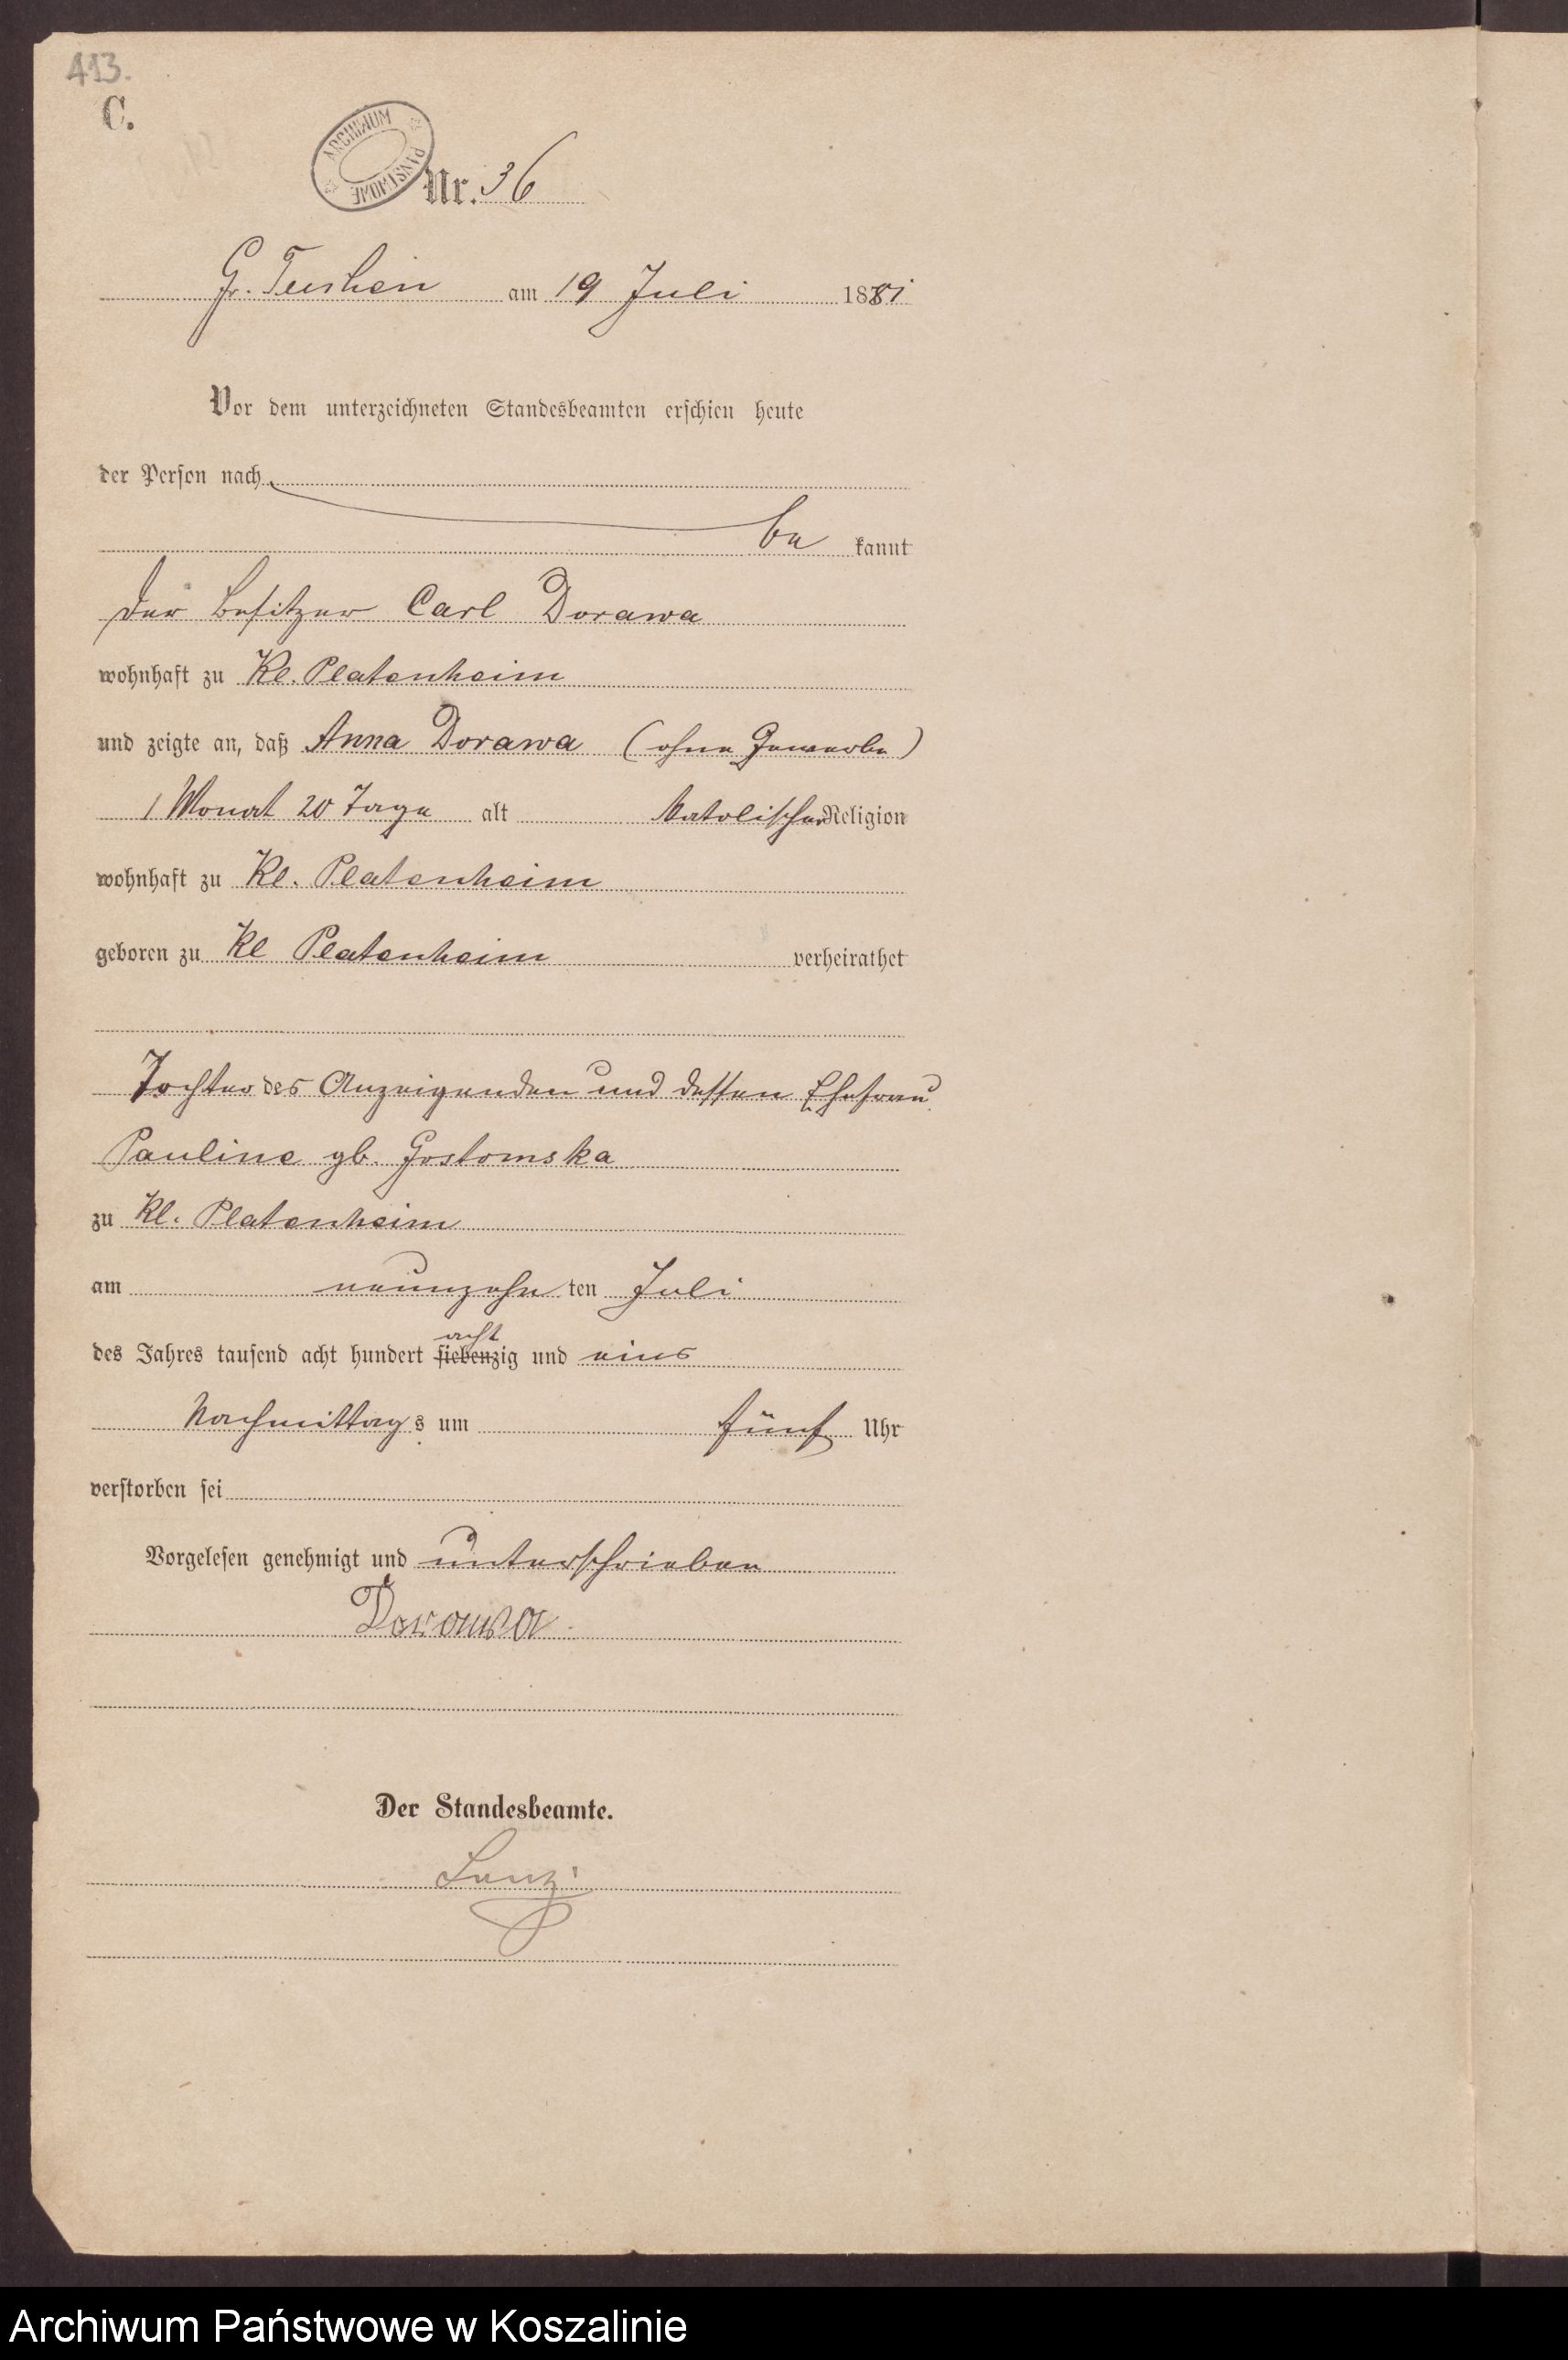 413.
C.
ARCHIWUM PAŃSTWOWE
Nr. 36
Gr. Tuchen am 19 Juli 1881
Vor dem unterzeichneten Standesbeamten erschien heute
der Person nach
be kannt
der Besitzer Carl Dorawa
wohnhaft zu Kl. Platenheim
und zeigte an, daß Anna Dorawa (ohne Gewerbe)
1 Monat 20 Tage alt katolischer Religion
wohnhaft zu Kl. Platenheim
geboren zu Kl Platenheim verheirathet
Tochter des Anzeigenden und dessen Ehefrau
Pauline gb. Gostomska
zu Kl. Platenheim
am neunzehn ten Juli
acht
des Jahres tausend acht hundert siebenzig und eins
Nachmittags um fünf Uhr
verstorben sei
Vorgelesen genehmigt und unterschrieben
Dorawa
Der Standesbeamte.
Archiwum Państwowe w Koszalinie